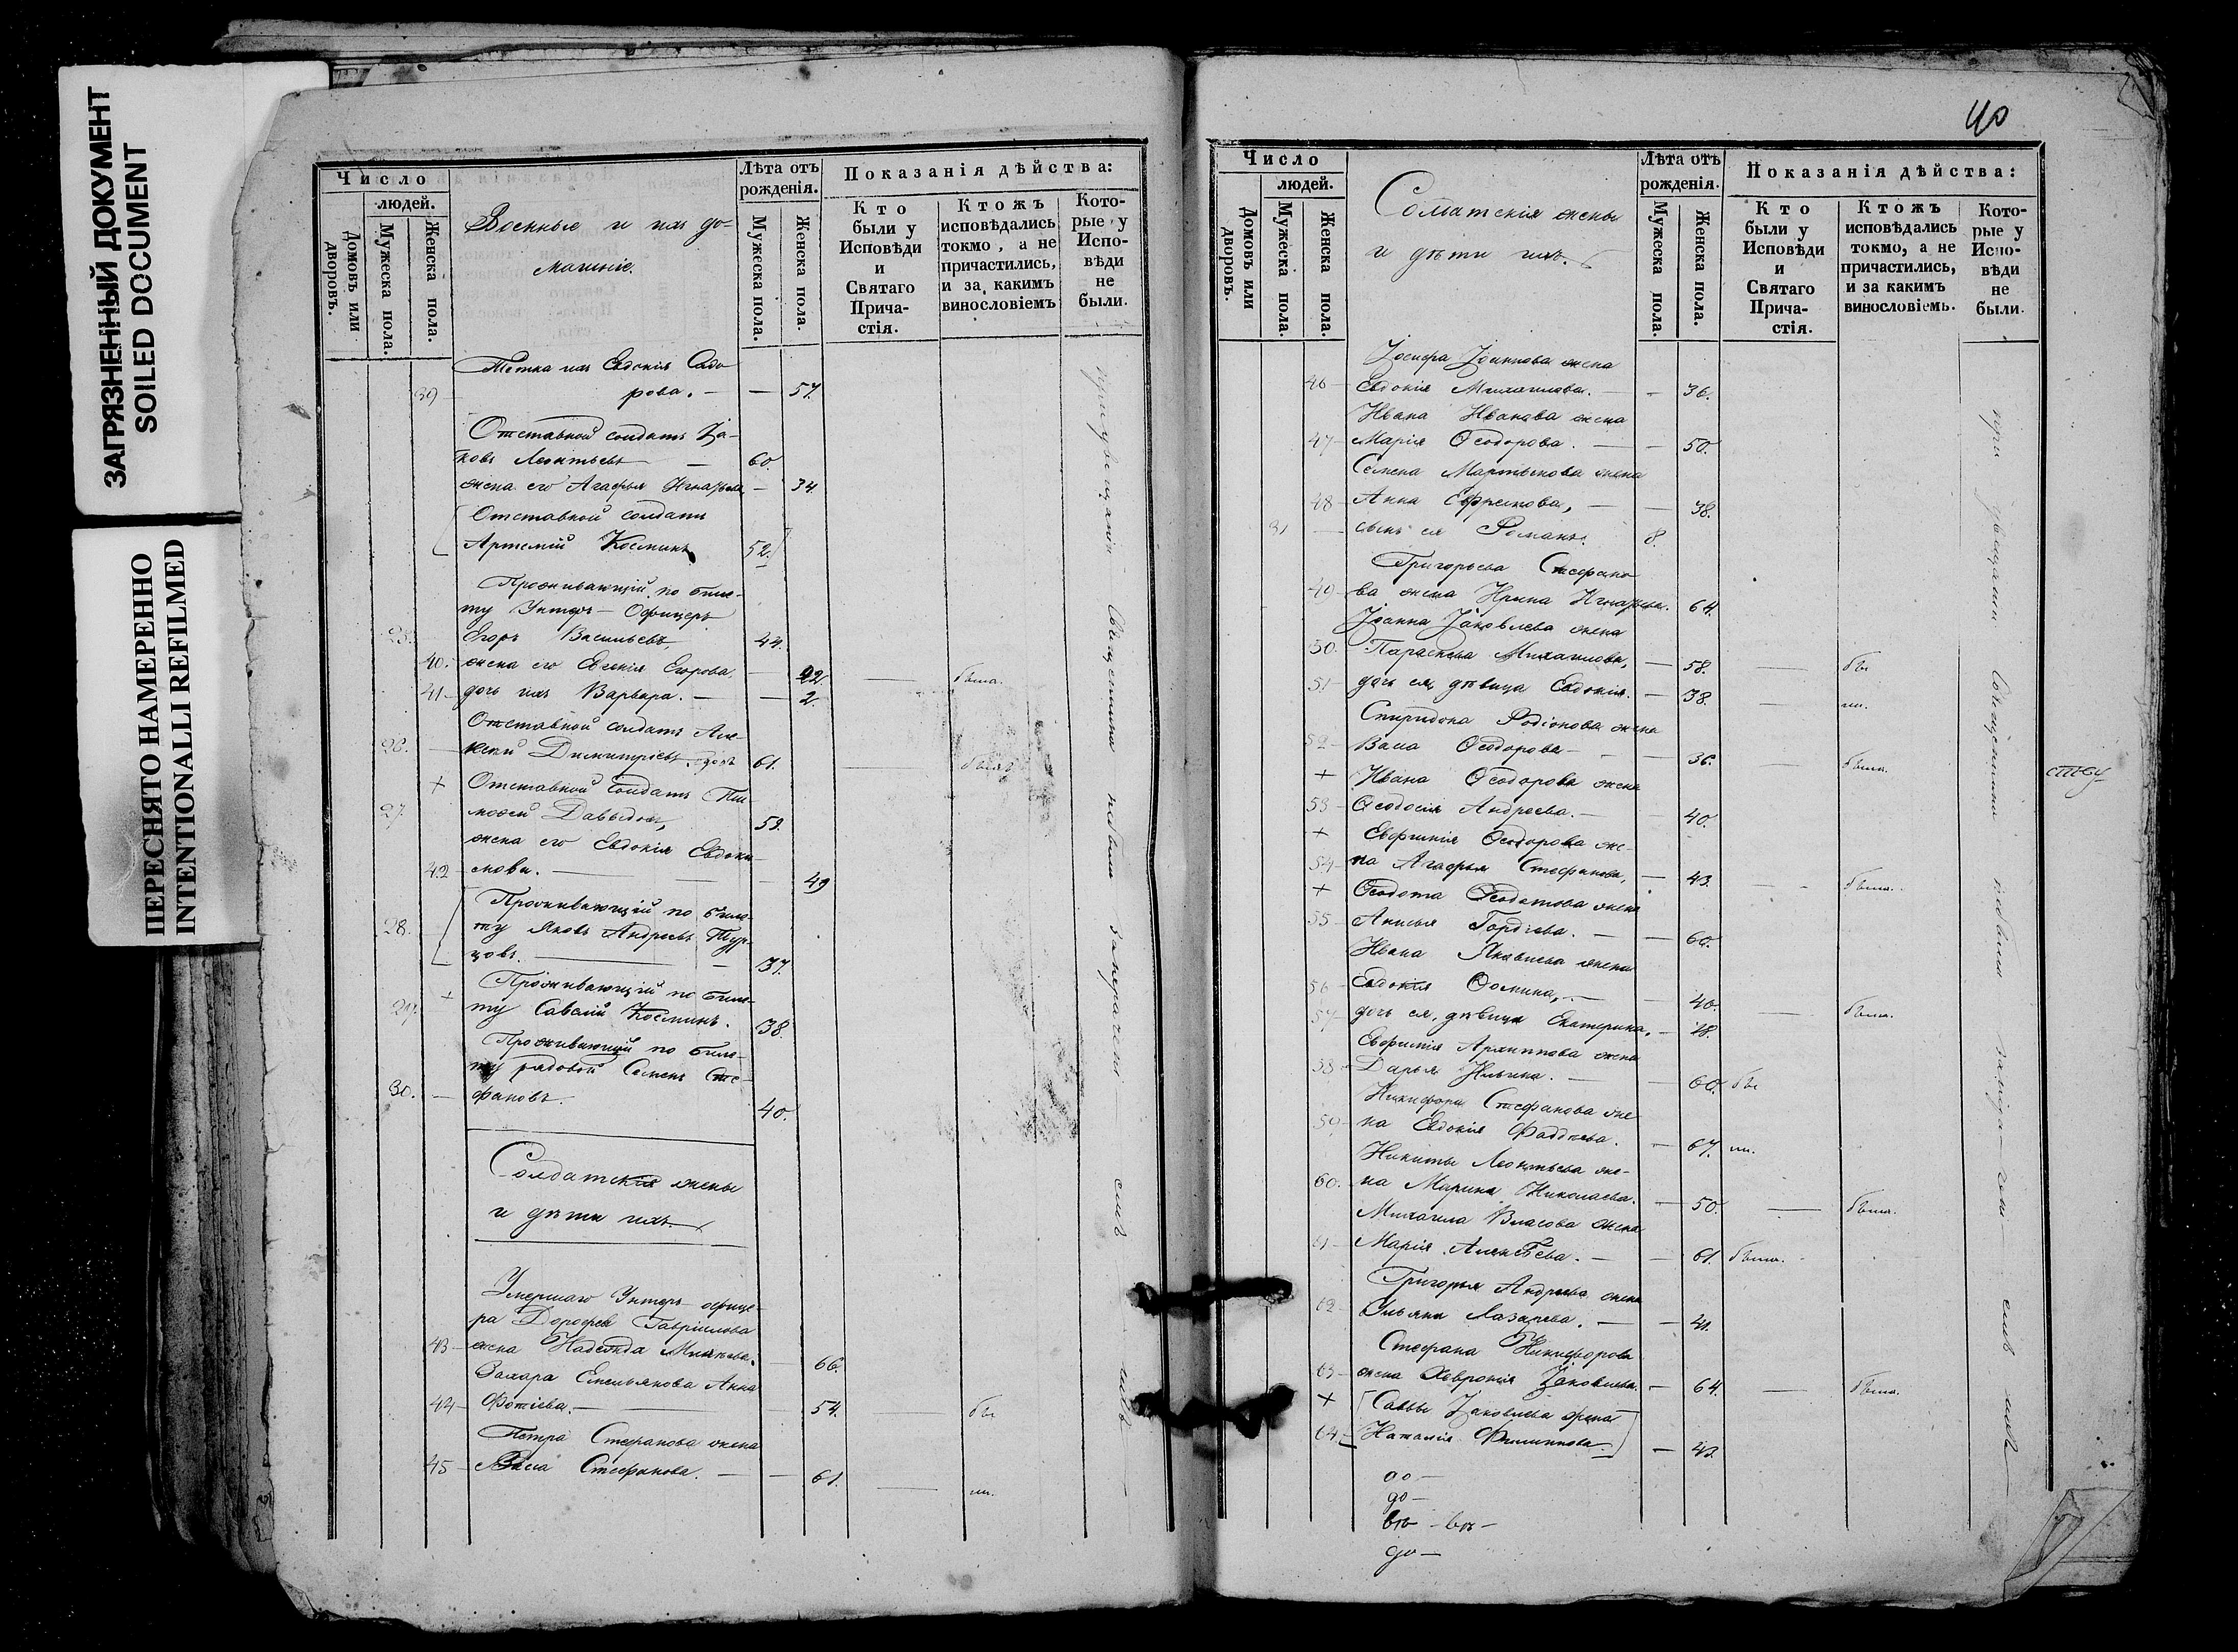 ЗАГРЯЗНЕННЫЙ ДОКУМЕНТ
SOILED DOCUMENT
ПЕРЕСНЯТО НАМЕРЕННО
INTENTIONALLI REFILMED
Число
людей.
Домовъ или дворовъ.
Мужеска пола.
Женска пола.
Военные и ихъ до-
машніе.
Лѣта отъ рожденія.
Мужеска пола.
Женска пола.
Показанія дѣйства:
Кто были у Исповѣди и Святаго Прича- стія.
Ктожъ исповѣдались токмо, а не причастились, и за какимъ винословіемъ
Кото- рые у Испо- вѣди не были.
39 Тетка ихъ Евдокія Ѳедо-
рова. — — 57.
Отставной солдатъ Іа-
ковъ Леонтьевъ — 60.
жена его Агафья Игнатьева — 34.
Отставной солдатъ
Артемій Косминъ 52.
Проживающій по биле-
ту Унтеръ-Офицеръ
25. Егоръ Васильевъ, 44.
40. жена его Евгенія Егорова. — 22. — была.
41 — дочь ихъ Варвара. — — 2.
Отставной солдатъ Але-
26. — ксѣй Димитріевъ, вдовъ 61. — былъ
+ Отставной солдатъ Ти-
27. моѳей Давыдовъ, 53.
жена его Евдокія Евдоки-
42 — мова. — — 49
Проживающій по биле-
28. ту Яковъ Андреевъ
цовъ. — 37.
+ Проживающій по биле-
29. ту Савелій Косминъ. 38.
Проживающій по биле-
ту рядовой Семенъ Сте-
30. — фановъ. 40.
Солдатскія жены
и дѣти ихъ
Умершаго Унтеръ-офице-
ра Дороѳея Гавріилова
43 — жена Надежда — 66.
Захара Емельянова Анна
44 — Фотіева. — — 54. бы
Петра Стефанова жена
45 — Васа Стефанова. — — 61. — ли.
при увещаніи Священника не были
40
Число
людей.
Домовъ или дворовъ.
Мужеска пола.
Женска пола.
Солдатскія жены
и дѣти ихъ.
Лѣта отъ рожденія.
Мужеска пола.
Женска пола.
Показанія дѣйства:
Кто были у Исповѣди и Святаго Прича- стія.
Ктожъ исповѣдались токмо, а не причастились, и за какимъ винословіемъ.
Кото- рые у Испо- вѣди не были.
Іосифа жена
46 — Евдокія Михаилова. — — 36.
Ивана Иванова жена
47 — Марія Ѳеодорова. — — 50.
Семена Мартынова жена
48 — Анна Ефремова, — — 38.
31 — сынъ ея Романъ. 8.
Григорьева Стефано-
49 — ва жена Ирина Игнатьева. 64.
Іоанна Іаковлева жена
50. Параскева Михаилова, — 58. — бы
51 — дочь ея, дѣвица Евдокія. — 38. — ли.
Спиридона Родіонова жена
52 — Васа Ѳеодорова — — 36. — была.
+ Ивана Ѳеодорова жена
53 — Ѳеодосія Андреева. — 40.
+ Евфимія Ѳеодорова же-
54 — на Агафья Стефанова, — 43. — была.
+ Ѳеодота Ѳеодотова жена
55 — Анисья Гордіева. — — 60.
Ивана Яковлева жена
56 — Евдокія Ѳомина, — — 40. — была.
57 — дочь ея, дѣвица Екатерина. — 18.
Евфимія Архиппова жена
58 — Дарья Ильина. — — 60. бы
Никифора Стефанова же-
59 — на Евдокія Фаддѣева. — 67. ли.
Никиты Леонтьева же-
60. на Марина Николаева. — 50. — была.
Михаила Власова жена
61 — Марія Алексѣева. — — 61. была.
Григорья Андреева жена
62 — Ульяна Лазарева. — — 41.
Стефана Никифорова
63 — жена Хевронія Іаковлева. — 64. — была.
+ Саввы Іаковлева жена
64 — Наталія Филиппова. — 42.
до —
до —
въ — въ —
до —
при увещаніи Священника не были